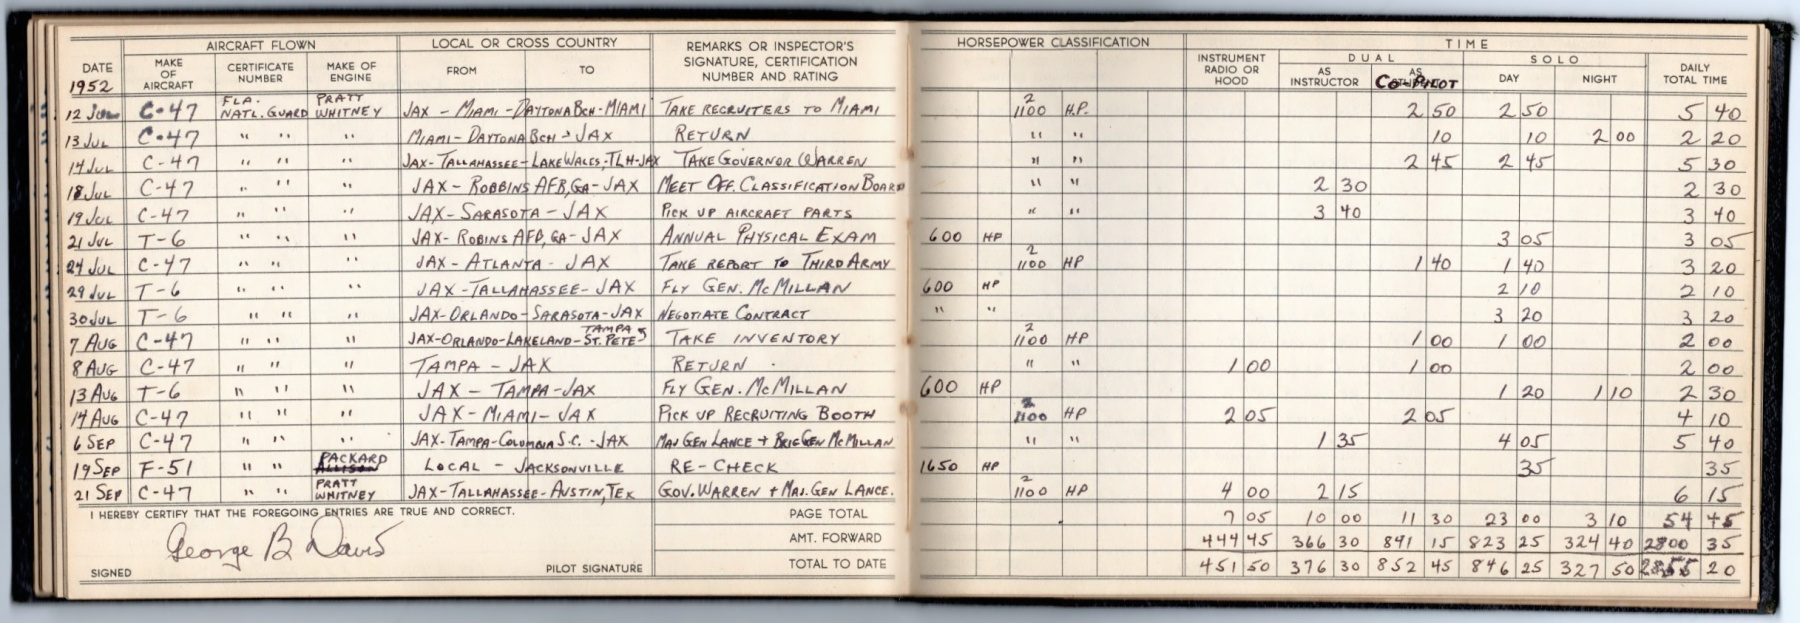 AIRCRAFT FLOWN LOCAL OR CROSS COUNTRY REMARKS OR INSPECTOR'S SIGNATURE, CERTIFICATION NUMBER AND RATING HORSEPOWER CLASSIFICATION TIME
DATE MAKE OF AIRCRAFT CERTIFICATE NUMBER MAKE OF ENGINE FROM TO INSTRUMENT RADIO OR HOOD DUAL SOLO DAILY TOTAL TIME
1952 AS INSTRUCTOR AS CO-PILOT DAY NIGHT
12 JUL C-47 FLA. NATL. GUARD PRATT WHITNEY JAX - MIAMI - DAYTONA BCH - MIAMI TAKE RECRUITERS TO MIAMI 2 1100 H.P. 2 50 2 50 5 40
13 JUL C-47 " " " MIAMI - DAYTONA BCH - JAX RETURN " " 10 10 2 00 2 20
14 JUL C-47 " " " JAX-TALLAHASSEE-LAKE WALES-TLH-JAX TAKE GOVERNOR WARREN " " 2 45 2 45 5 30
18 JUL C-47 " " " JAX - ROBBINS AFB, GA - JAX MEET OFF. CLASSIFICATION BOARD " " 2 30 2 30
19 JUL C-47 " " " JAX - SARASOTA - JAX PICK UP AIRCRAFT PARTS " " 3 40 3 40
21 JUL T-6 " " " JAX - ROBINS AFB, GA - JAX ANNUAL PHYSICAL EXAM 600 HP 3 05 3 05
24 JUL C-47 " " " JAX - ATLANTA - JAX TAKE REPORT TO THIRD ARMY 2 1100 HP 1 40 1 40 3 20
29 JUL T-6 " " " JAX - TALLAHASSEE - JAX FLY GEN. McMILLAN 600 HP 2 10 2 10
30 JUL T-6 " " " JAX - ORLANDO - SARASOTA - JAX NEGOTIATE CONTRACT " " 3 20 3 20
7 AUG C-47 " " " JAX-ORLANDO-LAKELAND-ST. PETE TAMPA TAKE INVENTORY 2 1100 HP 1 00 1 00 2 00
8 AUG C-47 " " " TAMPA - JAX RETURN " " 1 00 1 00 2 00
13 AUG T-6 " " " JAX - TAMPA - JAX FLY GEN. McMILLAN 600 HP 1 20 1 10 2 30
14 AUG C-47 " " " JAX - MIAMI - JAX PICK UP RECRUITING BOOTH 2 1100 HP 2 05 2 05 4 10
6 SEP C-47 " " " JAX-TAMPA-COLUMBIA S.C. - JAX MAJ GEN LANCE + BRIG GEN McMILLAN " " 1 35 4 05 5 40
19 SEP F-51 " " PACKARD ALLISON LOCAL - JACKSONVILLE RE-CHECK 1650 HP 35 35
21 SEP C-47 " " PRATT WHITNEY JAX-TALLAHASSEE-AUSTIN, TEX GOV. WARREN + MAJ. GEN LANCE. 2 1100 HP 4 00 2 15 6 15
I HEREBY CERTIFY THAT THE FOREGOING ENTRIES ARE TRUE AND CORRECT. PAGE TOTAL 7 05 10 00 11 30 23 00 3 10 54 45
George B Davis AMT. FORWARD 444 45 366 30 841 15 823 25 324 40 2800 35
SIGNED PILOT SIGNATURE TOTAL TO DATE 451 50 376 30 852 45 846 25 327 50 2855 20